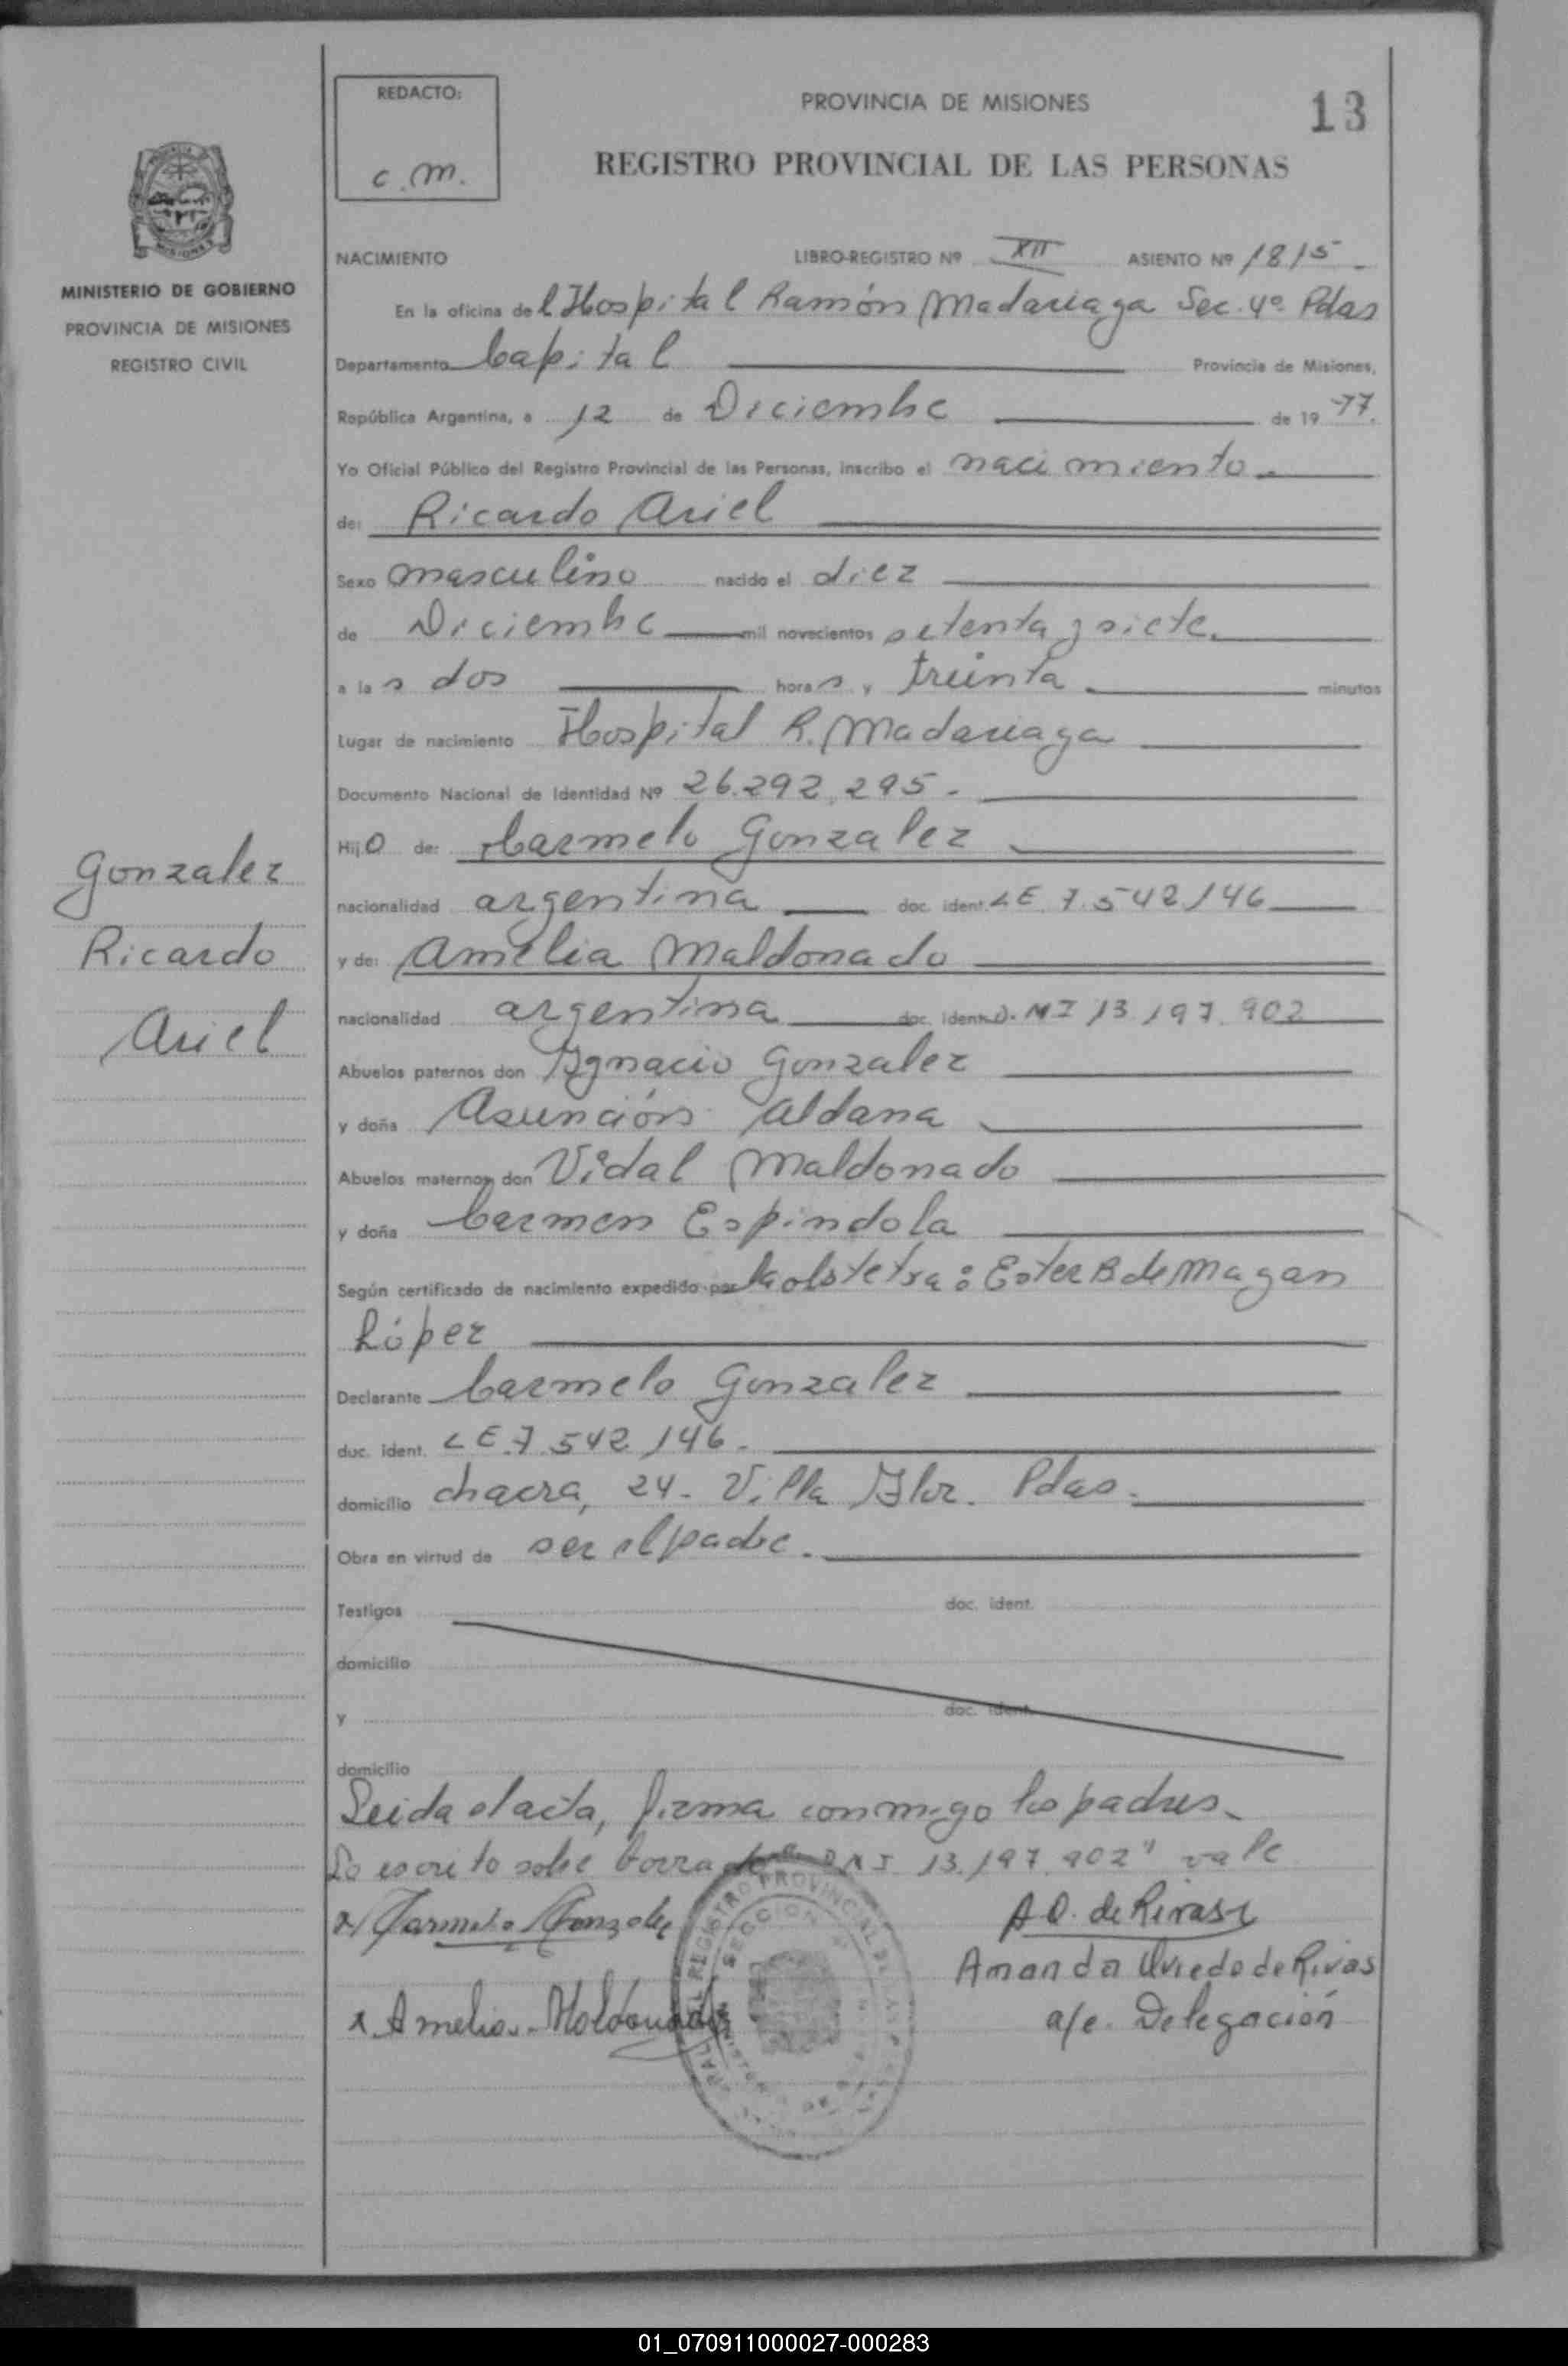 REDACTO:
c.m.
PROVINCIA DE MISIONES
13
REGISTRO PROVINCIAL DE LAS PERSONAS
MINISTERIO DE GOBIERNO
PROVINCIA DE MISIONES
REGISTRO CIVIL
NACIMIENTO LIBRO-REGISTRO Nº XII ASIENTO Nº 1815
En la oficina del Hospital Ramón Madariaga Sec. 4ª Pdas
Departamento Capital Provincia de Misiones,
República Argentina, a 12 de Diciembre de 1977.
Yo Oficial Público del Registro Provincial de las Personas, inscribo el nacimiento
de: Ricardo Ariel
Sexo masculino nacido el diez
de Diciembre mil novecientos setenta y siete
a las dos horas y treinta minutos
Lugar de nacimiento Hospital R. Madariaga
Documento Nacional de Identidad Nº 26.292.295.
Hijo de: Carmelo Gonzalez
nacionalidad argentina doc. ident. LE 7.542.146
y de: Amelia Maldonado
nacionalidad argentina doc. ident. D.NI 13.197.902
Abuelos paternos don Ygnacio Gonzalez
y doña Asunción Aldana
Abuelos maternos don Vidal Maldonado
y doña Carmen Espindola
Según certificado de nacimiento expedido por la obstetra: Ester B de Magan
López
Declarante Carmelo Gonzalez
duc. ident. LE.7.542.146.
domicilio chacra, 24- Villa Flor. Pdas.
Obra en virtud de ser el padre.
Testigos doc. ident.
domicilio
y doc. ident.
domicilio
Leida el acta, firma conmigo los padres
Lo escrito sobre borrado " DNI 13.197.902" vale
x Carmelo Gonzalez
A O. de Rivas
Amanda Oviedo de Rivas
x Amelia Maldonado
a/c. Delegación
Gonzalez
Ricardo
Ariel
01_070911000027-000283